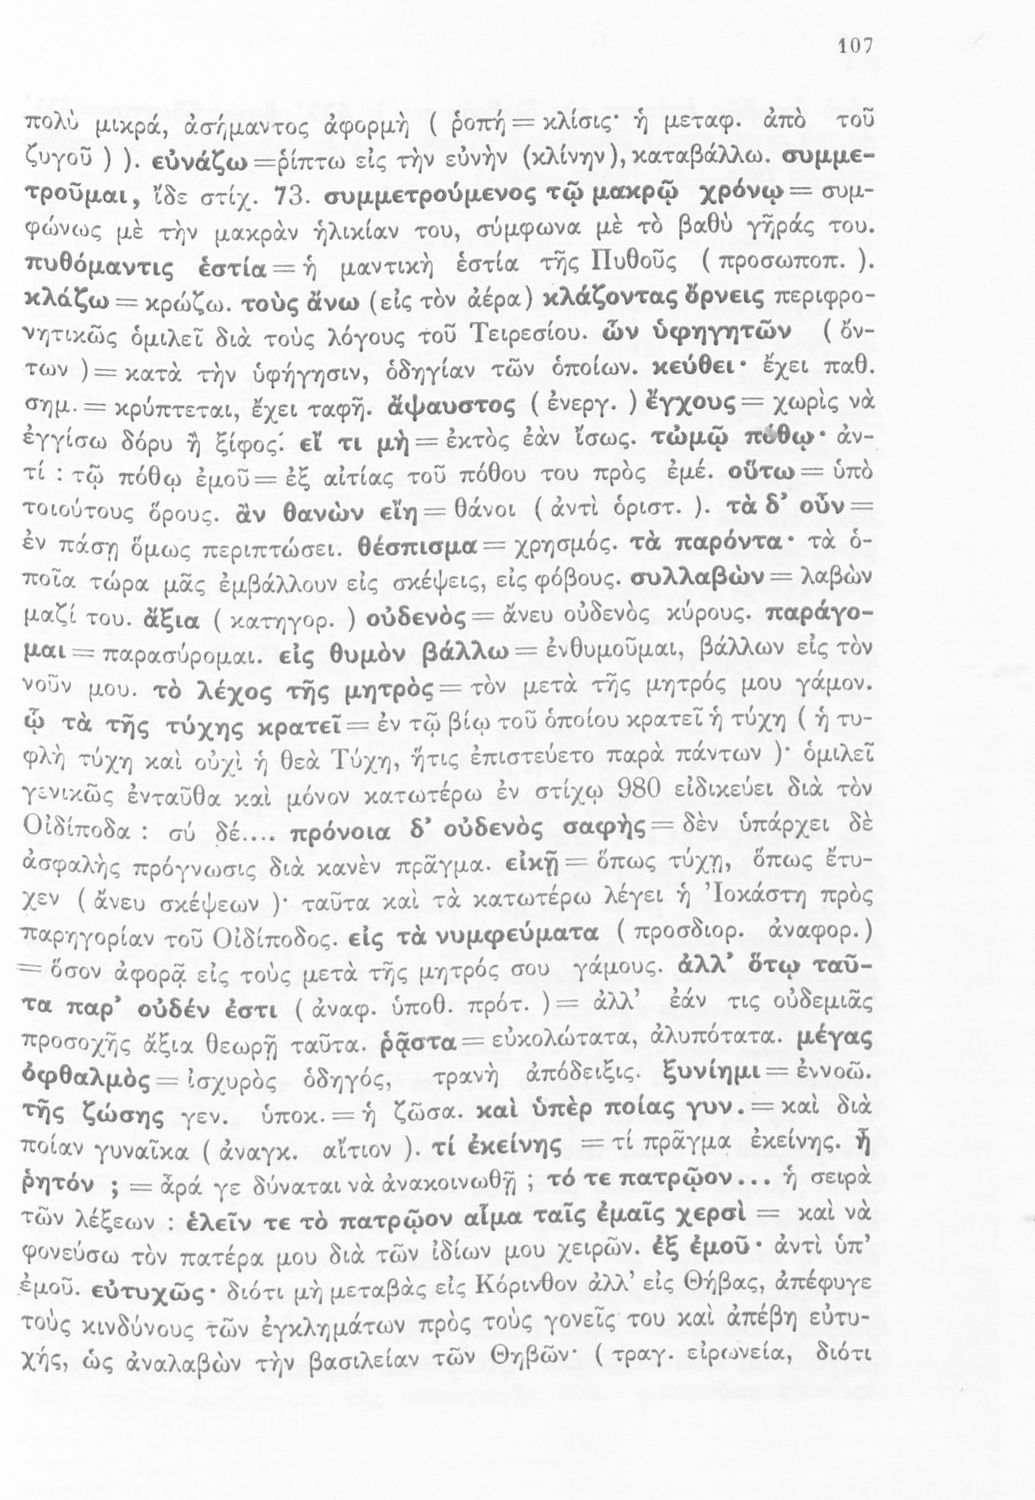 107
πολὺ μικρά, ἀσήμαντος ἀφορμὴ ( ῥοπή = κλίσις· ἡ μεταφ. ἀπὸ τοῦ
ζυγοῦ ) ). εὐνάζω = ρίπτω εἰς τὴν εὐνὴν (κλίνην), καταβάλλω. συμμε-
τροῦμαι, ἴδε στίχ. 73. συμμετρούμενος τῷ μακρῷ χρόνῳ = συμ-
φώνως μὲ τὴν μακρὰν ἡλικίαν του, σύμφωνα μὲ τὸ βαθὺ γῆράς του.
πυθόμαντις ἑστία = ἡ μαντικὴ ἑστία τῆς Πυθοῦς ( προσωποπ. ).
κλάζω = κρώζω. τοὺς ἄνω (εἰς τὸν ἀέρα) κλάζοντας ὄρνεις περιφρο-
νητικῶς ὁμιλεῖ διὰ τοὺς λόγους τοῦ Τειρεσίου. ὧν ὑφηγητῶν ( ὄν-
των ) = κατὰ τὴν ὑφήγησιν, ὁδηγίαν τῶν ὁποίων. κεύθει· ἔχει παθ.
σημ. = κρύπτεται, ἔχει ταφῆ. ἄψαυστος ( ἐνεργ. ) ἔγχους = χωρὶς νὰ
ἐγγίσω δόρυ ἢ ξίφος. εἴ τι μὴ = ἐκτὸς ἐὰν ἴσως. τὠμῷ πόθῳ· ἀν-
τί : τῷ πόθῳ ἐμοῦ = ἐξ αἰτίας τοῦ πόθου του πρὸς ἐμέ. οὕτω = ὑπὸ
τοιούτους ὅρους. ἂν θανὼν εἴη = θάνοι ( ἀντὶ ὁριστ. ). τὰ δ’ οὖν =
ἐν πάσῃ ὅμως περιπτώσει. θέσπισμα = χρησμός. τὰ παρόντα· τὰ ὁ-
ποῖα τώρα μᾶς ἐμβάλλουν εἰς σκέψεις, εἰς φόβους. συλλαβὼν = λαβὼν
μαζί του. ἄξια ( κατηγορ. ) οὐδενὸς = ἄνευ οὐδενὸς κύρους. παράγο-
μαι = παρασύρομαι. εἰς θυμὸν βάλλω = ἐνθυμοῦμαι, βάλλων εἰς τὸν
νοῦν μου. τὸ λέχος τῆς μητρὸς = τὸν μετὰ τῆς μητρός μου γάμον.
ᾧ τὰ τῆς τύχης κρατεῖ = ἐν τῷ βίῳ τοῦ ὁποίου κρατεῖ ἡ τύχη ( ἡ τυ-
φλὴ τύχη καὶ οὐχὶ ἡ θεὰ Τύχη, ἥτις ἐπιστεύετο παρὰ πάντων )· ὁμιλεῖ
γενικῶς ἐνταῦθα καὶ μόνον κατωτέρω ἐν στίχῳ 980 εἰδικεύει διὰ τὸν
Οἰδίποδα : σύ δέ.... πρόνοια δ’ οὐδενὸς σαφὴς = δὲν ὑπάρχει δὲ
ἀσφαλὴς πρόγνωσις διὰ κανὲν πρᾶγμα. εἰκῇ = ὅπως τύχῃ, ὅπως ἔτυ-
χεν ( ἄνευ σκέψεων )· ταῦτα καὶ τὰ κατωτέρω λέγει ἡ Ἰοκάστη πρὸς
παρηγορίαν τοῦ Οἰδίποδος. εἰς τὰ νυμφεύματα ( προσδιορ. ἀναφορ.)
= ὅσον ἀφορᾷ εἰς τοὺς μετὰ τῆς μητρός σου γάμους. ἀλλ’ ὅτῳ ταῦ-
τα παρ’ οὐδέν ἐστι ( ἀναφ. ὑποθ. πρότ. ) = ἀλλ’ ἐάν τις οὐδεμιᾶς
προσοχῆς ἄξια θεωρῇ ταῦτα. ῥᾷστα = εὐκολώτατα, ἀλυπότατα. μέγας
ὀφθαλμὸς = ἰσχυρὸς ὁδηγός, τρανὴ ἀπόδειξις. ξυνίημι = ἐννοῶ.
τῆς ζώσης γεν. ὑποκ. = ἡ ζῶσα. καὶ ὑπὲρ ποίας γυν. = καὶ διὰ
ποίαν γυναῖκα ( ἀναγκ. αἴτιον ). τί ἐκείνης = τί πρᾶγμα ἐκείνης. ἦ
ῥητόν ; = ἆρά γε δύναται νὰ ἀνακοινωθῇ ; τό τε πατρῷον... ἡ σειρὰ
τῶν λέξεων : ἑλεῖν τε τὸ πατρῷον αἷμα ταῖς ἐμαῖς χερσὶ = καὶ νὰ
φονεύσω τὸν πατέρα μου διὰ τῶν ἰδίων μου χειρῶν. ἐξ ἐμοῦ· ἀντὶ ὑπ’
ἐμοῦ. εὐτυχῶς· διότι μὴ μεταβὰς εἰς Κόρινθον ἀλλ’ εἰς Θήβας, ἀπέφυγε
τοὺς κινδύνους τῶν ἐγκλημάτων πρὸς τοὺς γονεῖς του καὶ ἀπέβη εὐτυ-
χής, ὡς ἀναλαβὼν τὴν βασιλείαν τῶν Θηβῶν· ( τραγ. εἰρωνεία, διότι